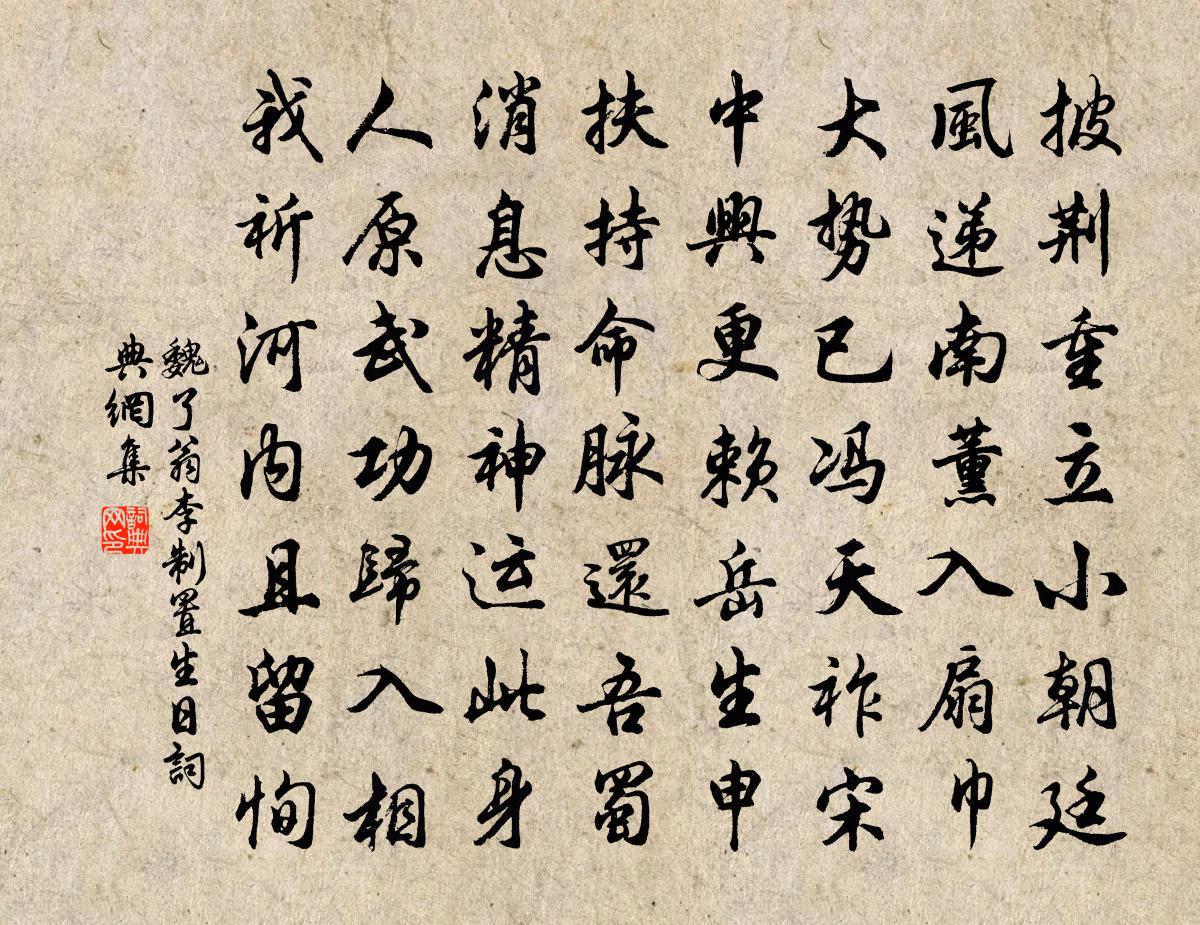 披荆重立小朝廷
風递南薰入扇巾
大势已冯天祚宋
中興更赖岳生申
扶持命脉還吾蜀
消息精神运此身
人原武功歸入相
我祈河内且留恂
魏了翁李制置生日詞
典網集
詞典
网印